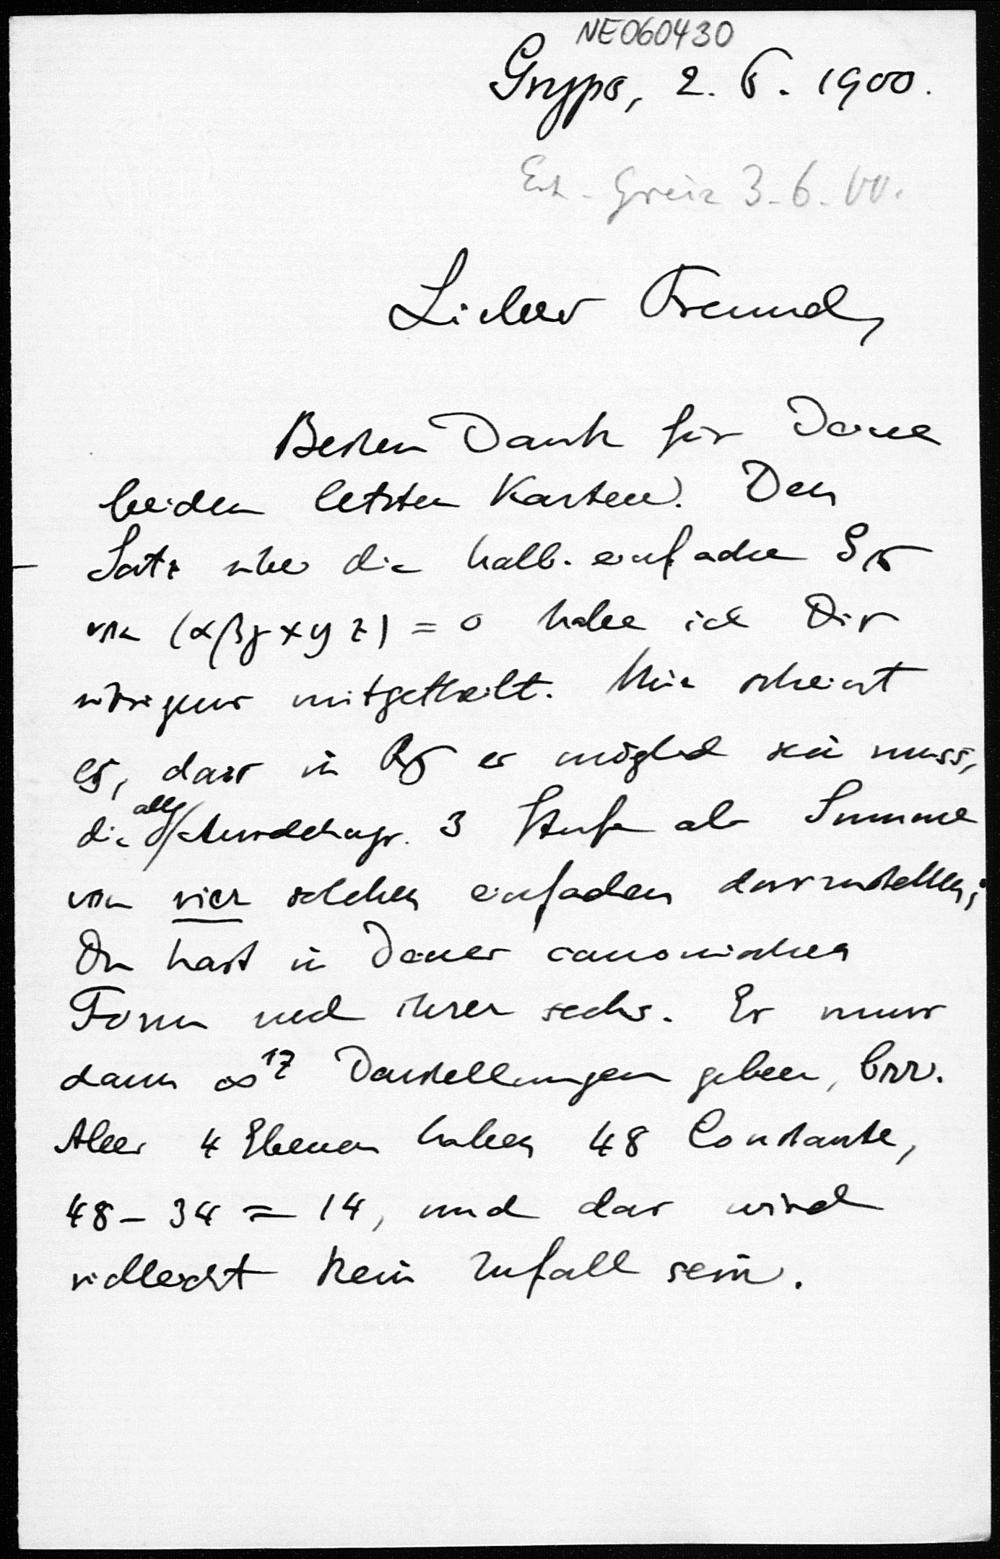 NE060430
Gryps, 2. 6. 1900.
Erh. Greiz 3.6.00.
Lieber Freund,
Besten Dank für Deine
beiden letzten Karten. Den
Satz über die halb-einfache
von (αβγxyz) = 0 habe ich Dir
mitgetheilt. Mir scheint
es, dass in es möglich sein muss,
die
alle
3 Stufe als Summe
von vier solchen einfachen darzustellen;
Du hast in Deiner canonischen
Form noch ihrer sechs. Es muss
dann ∞17 Darstellungen geben, bzw.
Aber 4 Ebenen haben 48 Constante,
48 – 34 = 14, und das wird
vielleicht kein Zufall sein.